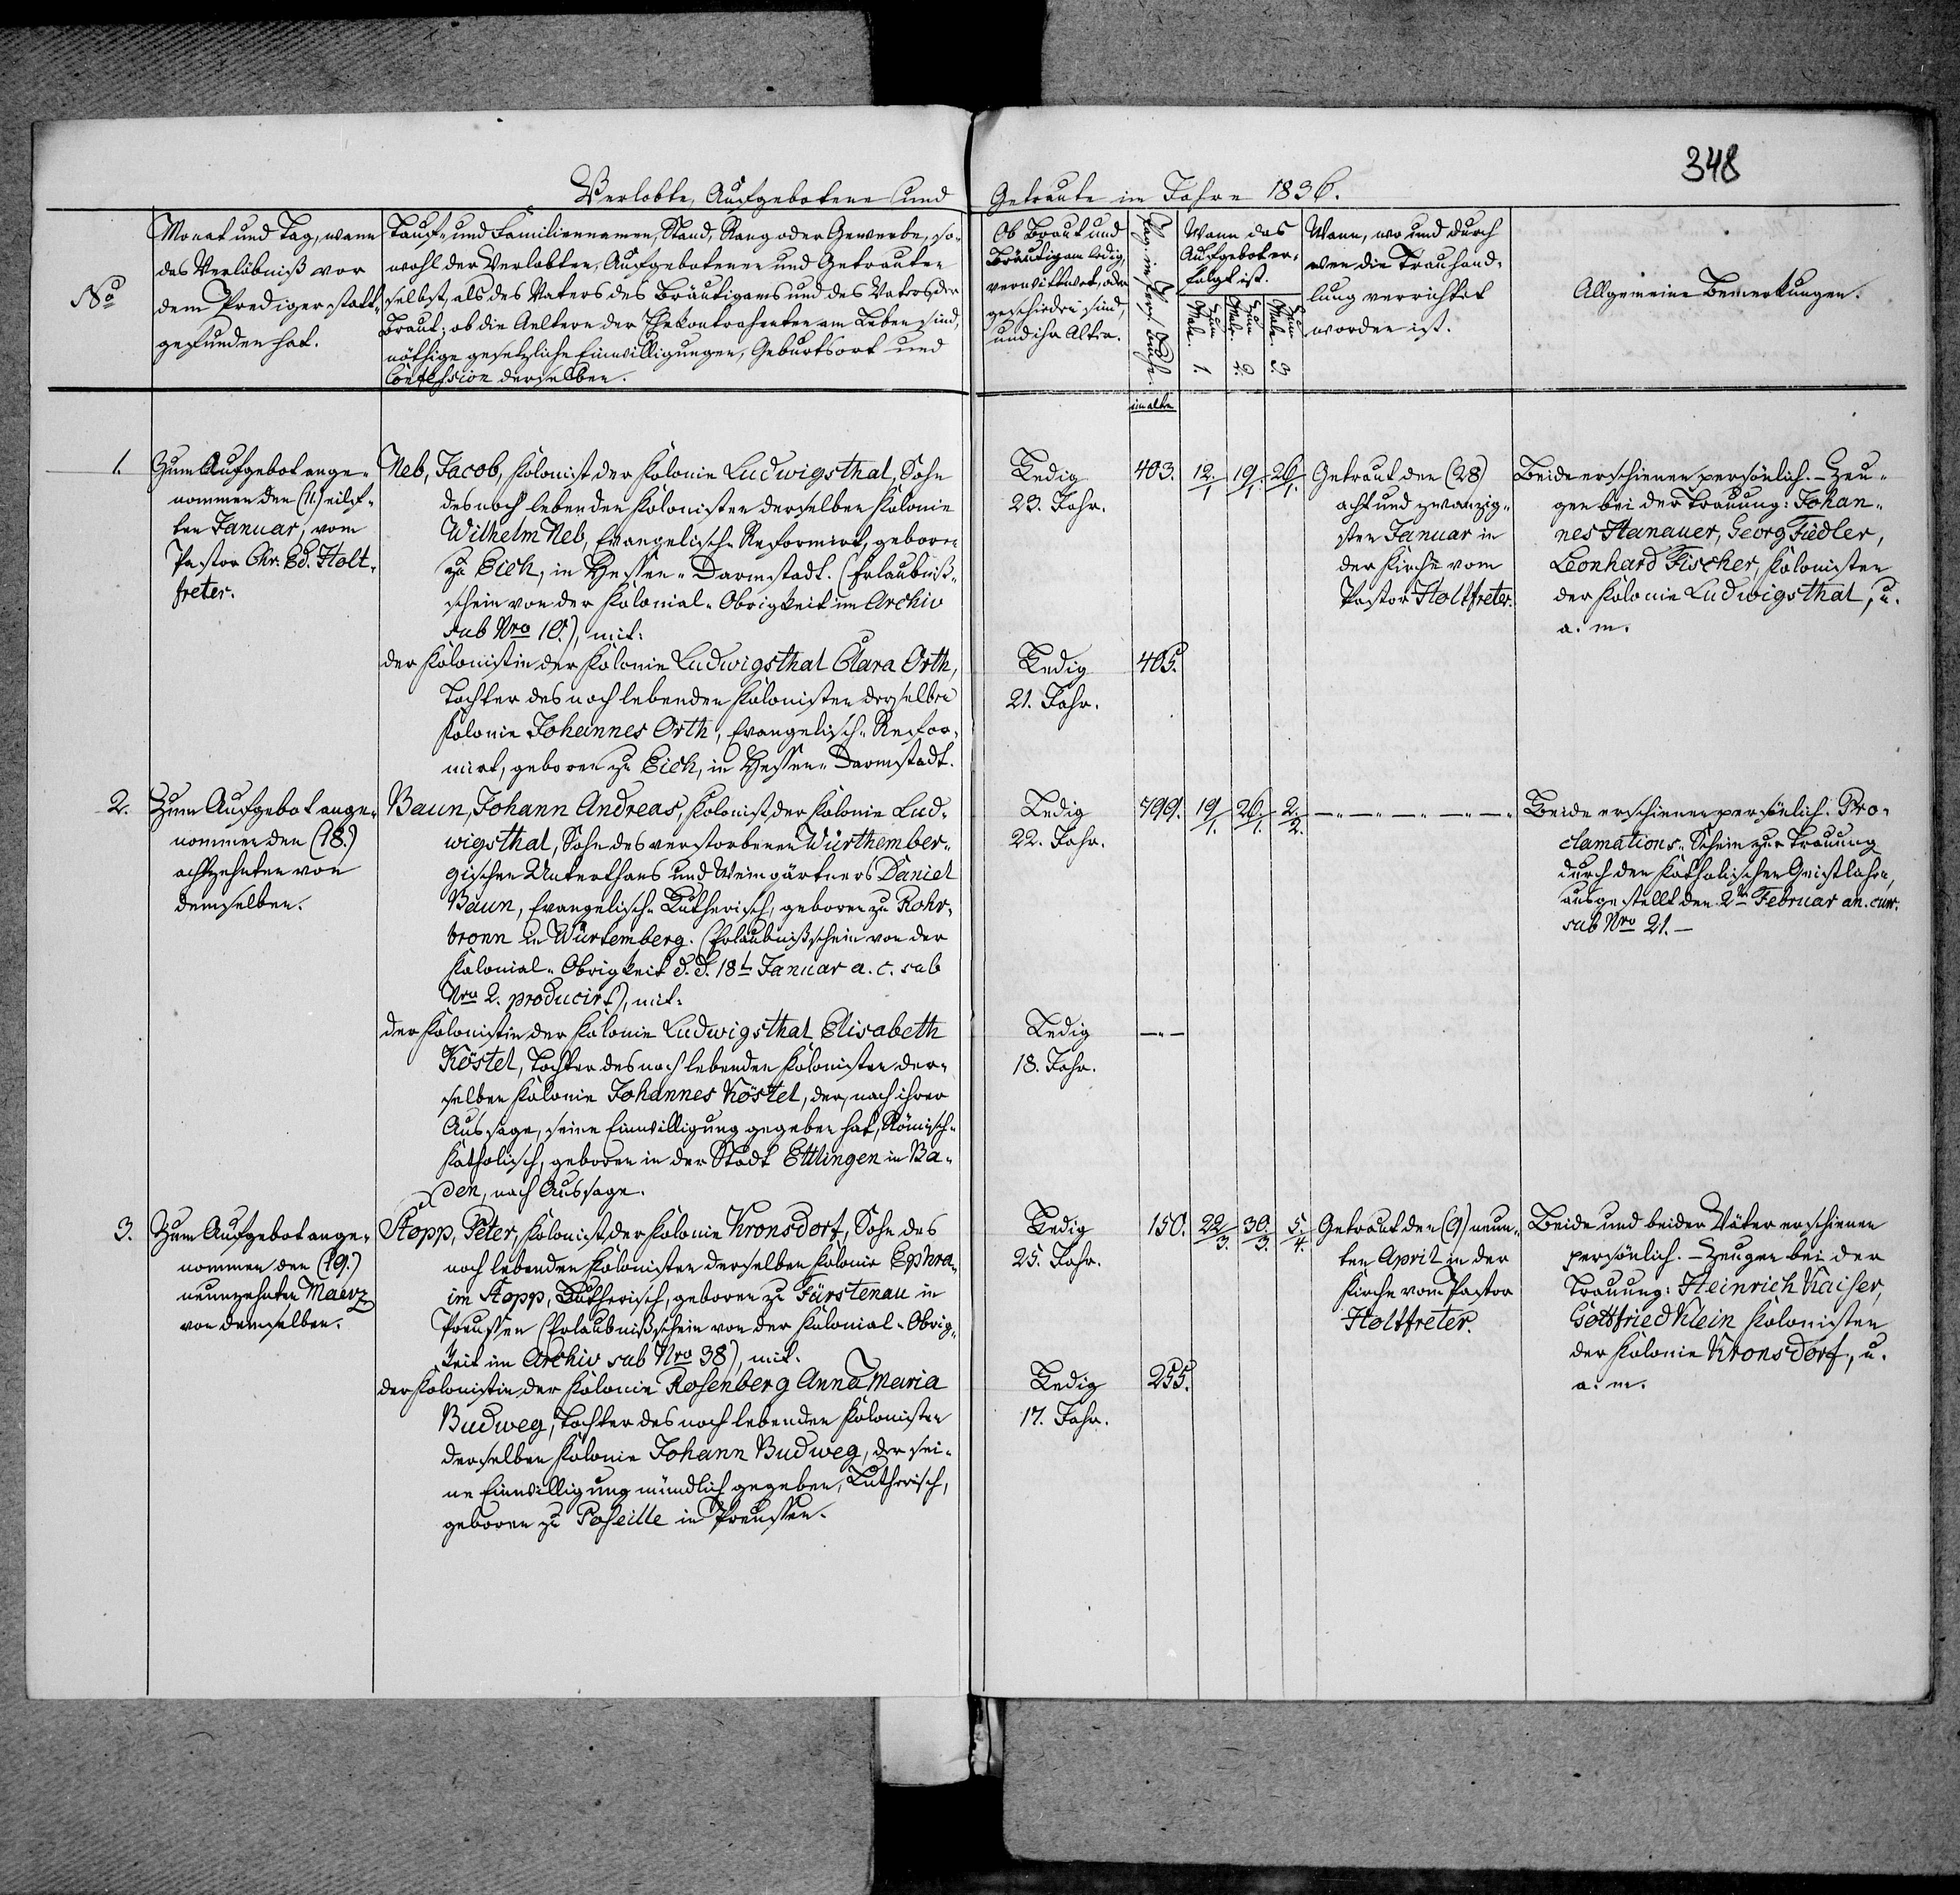 348
Verlobte, Aufgebotene und Getraute im Jahre 1836.
No
Monat und Tag, wann
das Verlöbniß vor
dem Prediger statt-
gefunden hat.
Tauf- und Familiennamen, Stand, Rang oder Gewerbe, so-
wohl der Verlobten, Aufgebotenen und Getrauten
selbst, als des Vaters des Bräutigams und des Vaters der
Braut; ob die Aeltern der Ehekontrahenten am Leben sind,
nöthige gesetzliche Einwilligungen, Geburtsort und
Confession derselben.
Ob Braut und
Bräutigam ledig,
verwittwet, oder
geschieden sind,
und ihr Alter.
Wann das
Aufgebot er-
folgt ist.
Zum 1. Male.
Zum 2. Male.
Zum 3. Male.
Wann, wo und durch
wen die Trauhand-
lung verrichtet
worden ist.
Allgemeine Bemerkungen.
im alten
1.
Zum Aufgebot ange-
nommen den (11.) eilf-
ten Januar, vom
Pastor Chr. Ed. Holt-
freter.
Neb, Jacob, Kolonist der Kolonie Ludwigsthal, Sohn
des noch lebenden Kolonisten derselben Kolonie
Wilhelm Neb, Evangelisch-Reformirt, geboren
zu Eich, in Hessen-Darmstadt. (Erlaubniß-
schein von der Kolonial-Obrigkeit im Archiv
sub Nro 10.), mit:
der Kolonistin der Kolonie Ludwigsthal Clara Orth,
Tochter des noch lebenden Kolonisten derselben
Kolonie Johannes Orth, Evangelisch-Refor-
mirt, geboren zu Eich, in Hessen-Darmstadt.
Ledig
23. Jahr.
403.
12./1 19/1. 26/1.
Ledig
21. Jahr.
405.
Getraut den (28)
acht und zwanzig-
sten Januar in
der Kirche vom
Pastor Holtfreter.
Beide erschienen persönlich. – Zeu-
gen bei der Trauung: Johan-
nes Hanauer, Georg Fiedler,
Leonhard Fischer, Kolonisten
der Kolonie Ludwigsthal, u.
a. m.
2.
Zum Aufgebot ange-
nommen den (18.)
achtzehnten von
demselben.
Baun, Johann Andreas, Kolonist der Kolonie Lud-
wigsthal, Sohn des verstorbenen Würthember-
gischen Unterthans und Weingärtners Daniel
Baun, Evangelisch-Lutherisch, geboren zu Rohr-
bronn in Würtemberg. (Erlaubnißschein von der
Kolonial-Obrigkeit d. d. 18t Januar a. c. sub
Nro 2. producirt), mit:
der Kolonistin der Kolonie Ludwigsthal Elisabeth
Köstel, Tochter des noch lebenden Kolonisten der-
selben Kolonie Johannes Köstel, der, nach ihrer
Aussage, seine Einwilligung gegeben hat, Römisch-
Katholisch, geboren in der Stadt Ettlingen in Ba-
den, nach Aussage.
Ledig
22. Jahr.
499.
19/1. 26/1. 2./2.
Ledig
18. Jahr.
—"—
—"—"—"—"—"
Beide erschienen persönlich. Pro-
clamations-Schein zur Trauung
durch den Katholischen Geistlichen,
ausgestellt den 2ten Februar an. curr.
sub Nro 21. –
3.
Zum Aufgebot ange-
nommen den (19.)
neunzehnten Maerz
von demselben.
Stopp, Peter, Kolonist der Kolonie Kronsdorf, Sohn des
noch lebenden Kolonisten derselben Kolonie Ephra-
im Stopp, Lutherisch, geboren zu Fürstenau in
Preussen (Erlaubnißschein von der Kolonial-Obrig-
keit im Archiv sub Nro 38), mit:
der Kolonistin der Kolonie Rosenberg Anna Maria
Budweg, Tochter des noch lebenden Kolonisten
derselben Kolonie Johann Budweg, der sei-
ne Einwilligung mündlich gegeben, Lutherisch,
geboren zu Poseille in Preussen.
Ledig
25. Jahr.
150.
22/3. 30./3. 5./4.
Ledig
17. Jahr.
255.
Getraut den (9) neun-
ten April in der
Kirche vom Pastor
Holtfreter.
Beide und beider Väter erschienen
persönlich. – Zeugen bei der
Trauung: Heinrich Kaiser,
Gottfried Klein Kolonisten
der Kolonie Kronsdorf, u.
a. m.